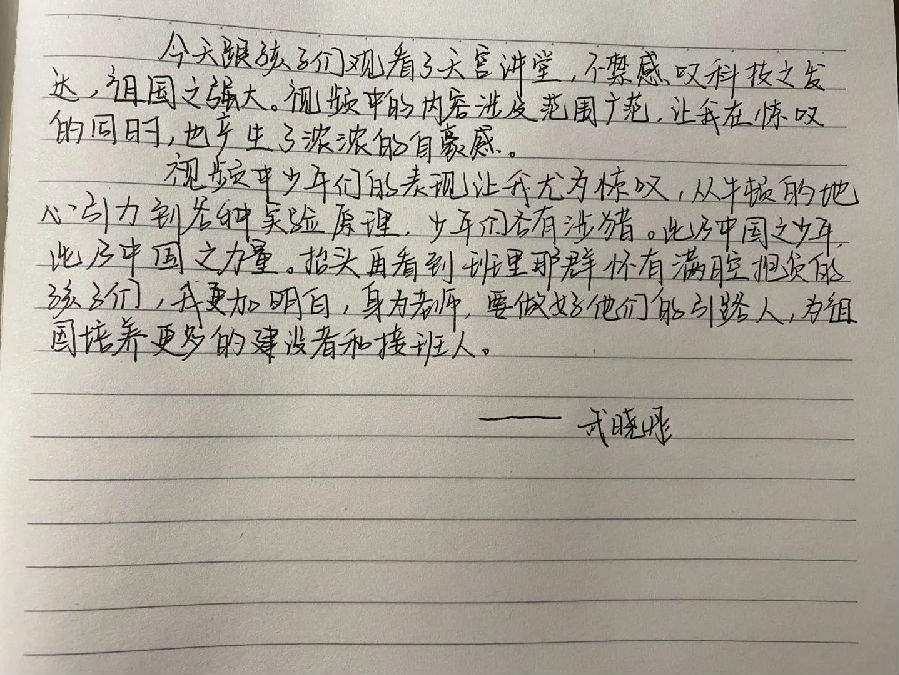 今天跟孩子们观看了天宫讲堂，不禁感叹科技之发
达，祖国之强大。视频中的内容涉及范围广范，让我在惊叹
的同时，也产生了浓浓的自豪感。
视频中少年们的表现让我尤为惊叹，从牛顿的地
心引力到各种实验原理，少年们否有涉猎。此乃中国之少年，
此乃中国之力量。抬头再看到班里那群怀有满腔抱负的
孩子们，我更加明白，身为老师，要做好他们的引路人，为祖
国培养更多的建设者和接班人。
—— 武晓彤